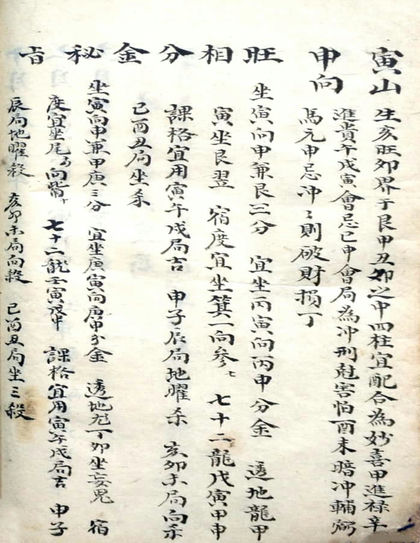 寅山
申向
旺相分金秘旨
生亥旺卯界于艮甲丑卯之中四柱宜配合為妙喜甲進祿辛
進貴午戌寅會忌巳申會局為冲刑尅害怕酉未暗冲輔弼
馬元申忌冲〻則破財損丁
坐寅向申兼艮三分 宜坐丙寅向丙申分金 透地龍甲
寅坐艮翌 宿度宜坐箕一向參 七十二龍戊寅甲申
課格宜用寅午戌局吉 申子辰局地曜杀 亥卯未局向杀
巳酉丑局坐杀
坐寅向申兼甲庚三分 宜坐庚寅向庚申分金 透地龙丁卯坐 鬼 宿
度宜坐尾 向觜 七十二龍壬寅戊申 課格宜用寅午戌局吉 申子
辰局地曜殺 亥卯未局向殺 巳酉丑局坐三殺